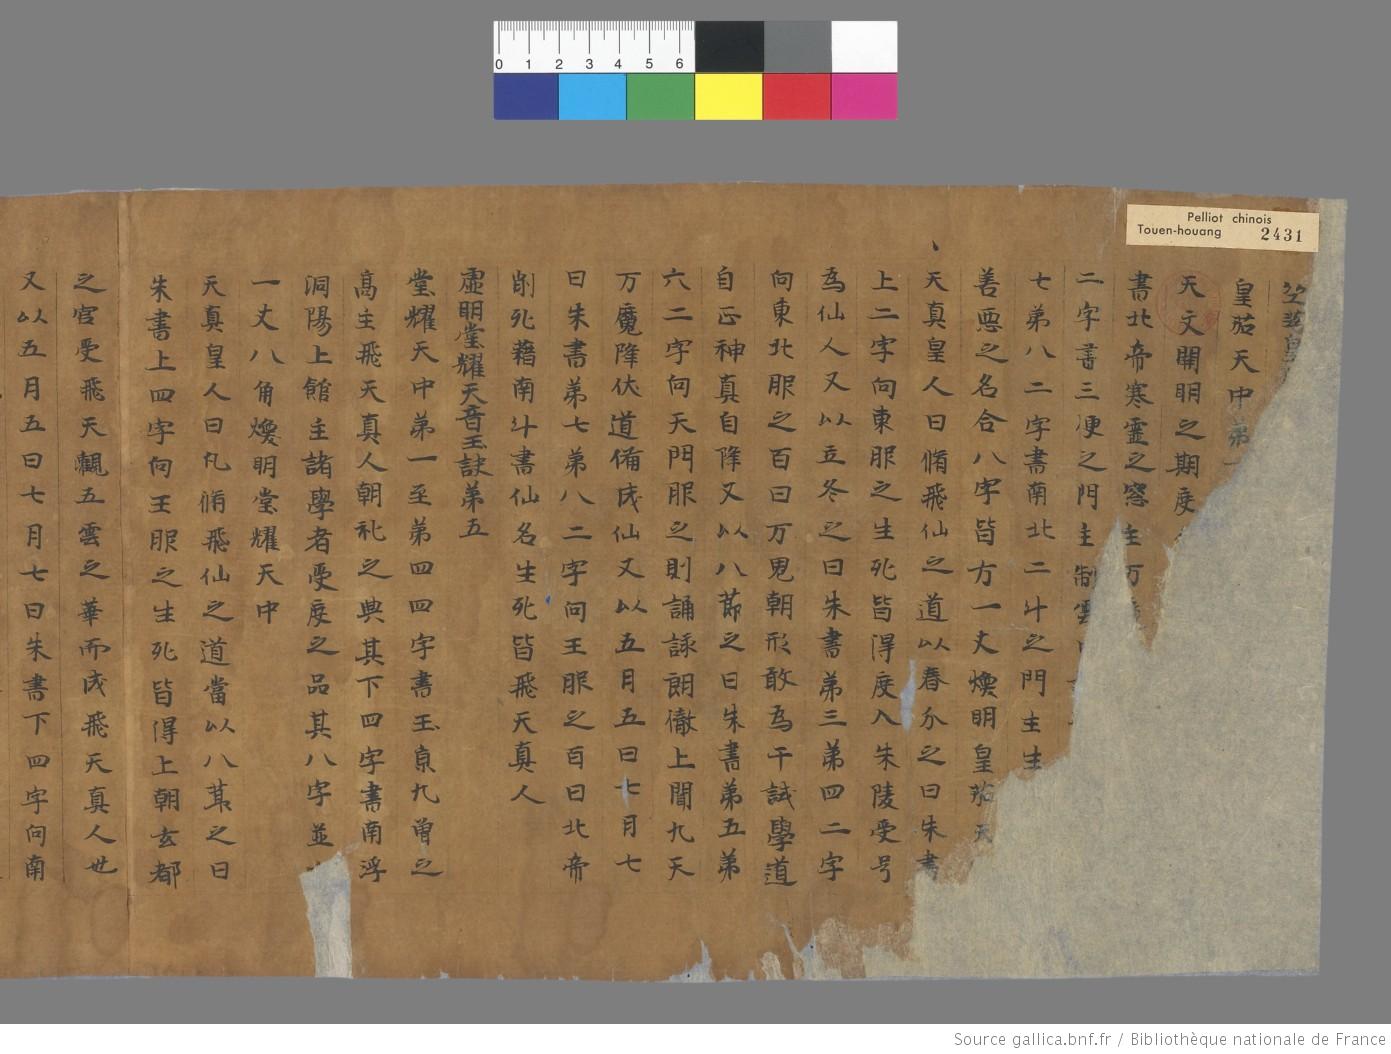 0 1 2 3 4 5 6
Pelliot chinois
Touen-houang 2431
皇笳天中弟
天文開明之期度
書北帝寒靈之窓主万
二字書三便之門主制雲
七弟八二字書南北二斗之門主生
善惡之名合八字皆方一丈煥明皇笳天
天真皇人曰脩飛仙之道以春分之日朱書
上二字向東服之生死皆得度入朱陵受号
為仙人又以立冬之日朱書弟三弟四二字
向東北服之百日万鬼朝形敢為干試學道
自正神真自降又以八節之日朱書弟五弟
六二字向天門服之則誦詠朗徹上聞九天
万魔降伏道備成仙又以五月五日七月七
日朱書弟七弟八二字向王服之百日北帝
削死藉南斗書仙名生死皆飛天真人
虛明堂耀天音玉訣弟五
堂耀天中弟一至弟四四字書玉京九曽之
髙主飛天真人朝礼之典其下四字書南浮
洞陽上館主諸學者受度之品其八字並
一丈八角煥明堂耀天中
天真皇人曰凡脩飛仙之道當以八萁之日
朱書上四字向王服之生死皆得上朝玄都
之宮受飛天飄五雲之華而成飛天真人也
又以五月五日七月七日朱書下四字向南
Source gallica.bnf.fr / Bibliothèque nationale de France